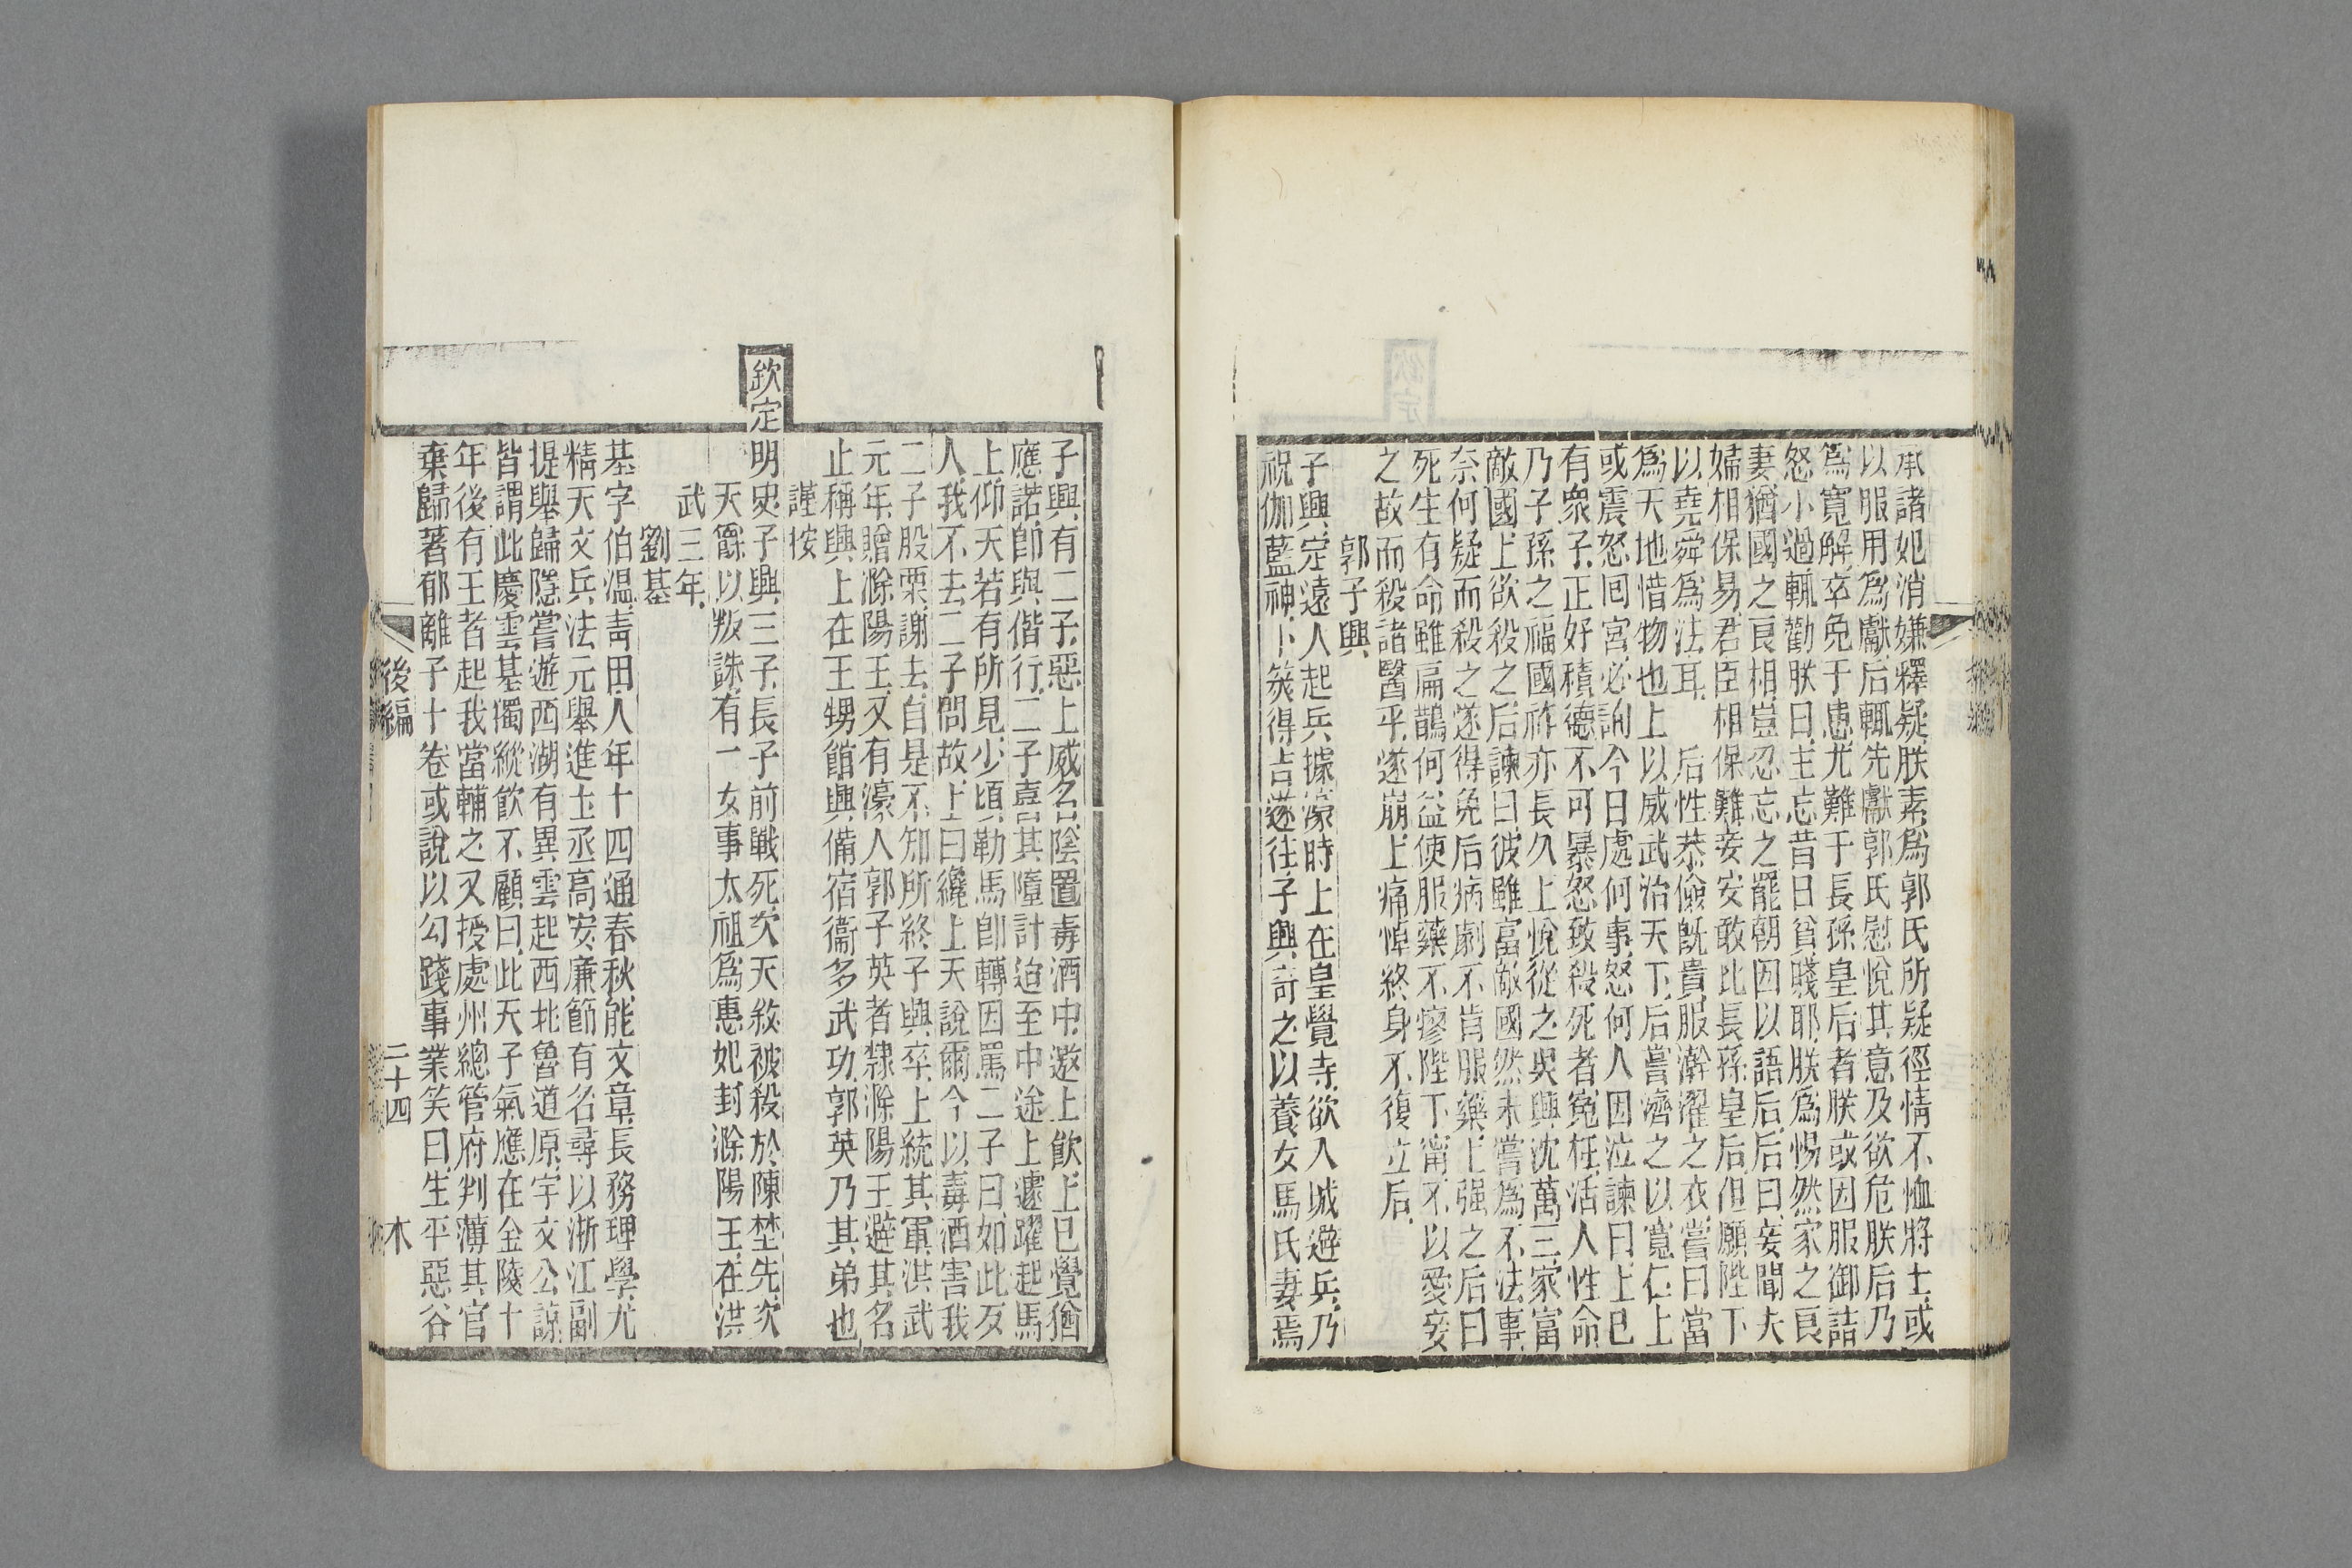 承諸妃消嫌釋疑朕素爲郭氏所疑徑情不恤將士或
以服用爲獻后輒先獻郭氏慰悅其意及欲危朕后乃
爲寬解卒免于患尤難于長孫皇后者朕或因服御詰
怒小過輒勸朕曰主忘昔日貧賤耶朕爲惕然家之良
妻猶國之良相豈忍忘之罷朝因以語后后曰妾聞夫
婦相保易君臣相保難妾安敢比長孫皇后但願陛下
以堯舜爲法耳 后性恭儉旣貴服澣濯之衣嘗曰當
爲天地惜物也上以威武治天下后嘗濟之以寬仁上
或震怒囘宮必詢今日處何事怒何人因泣諫曰上已
有衆子正好積德不可暴怒致殺死者寃枉活人性命
乃子孫之福國祚亦長久上悅從之吳興沈萬三家富
敵國上欲殺之后諫曰彼雖富敵國然未嘗爲不法事
奈何疑而殺之遂得免后病劇不肯服藥上强之后曰
死生有命雖扁鵲何益使服藥不瘳陛下甯不以愛妾
之故而殺諸醫乎遂崩上痛悼終身不復立后
郭子興
子興定遠人起兵據濠時上在皇覺寺欲入城避兵乃
祝伽藍神卜筊得吉遂往子興奇之以養女馬氏妻焉
子興有二子惡上威名陰置毒酒中邀上飲上已覺猶
應諾卽與偕行二子喜其墮計迫至中途上遽躍起馬
上仰天若有所見少頃勒馬卽轉因罵二子曰如此歹
人我不去二子問故上曰纔上天說爾今以毒酒害我
二子股栗謝去自是不知所終子興卒上統其軍洪武
元年贈滁陽王又有濠人郭子英者隸滁陽王避其名
止稱興上在王甥館興備宿衞多武功郭英乃其弟也
謹按
欽定明史子興三子長子前戰死次天敘被殺於陳埜先次
天爵以叛誅有一女事太祖爲惠妃封滁陽王在洪
武三年
劉基
基字伯温靑田人年十四通春秋能文章長務理學尤
精天文兵法元舉進士丞高安廉節有名尋以浙江副
提舉歸隱嘗遊西湖有異雲起西北魯道原宇文公諒
皆謂此慶雲基獨縱飲不顧曰此天子氣應在金陵十
年後有王者起我當輔之又授處州總管府判薄其官
棄歸著郁離子十卷或說以勾踐事業笑曰生平惡谷
後編 二十四 木